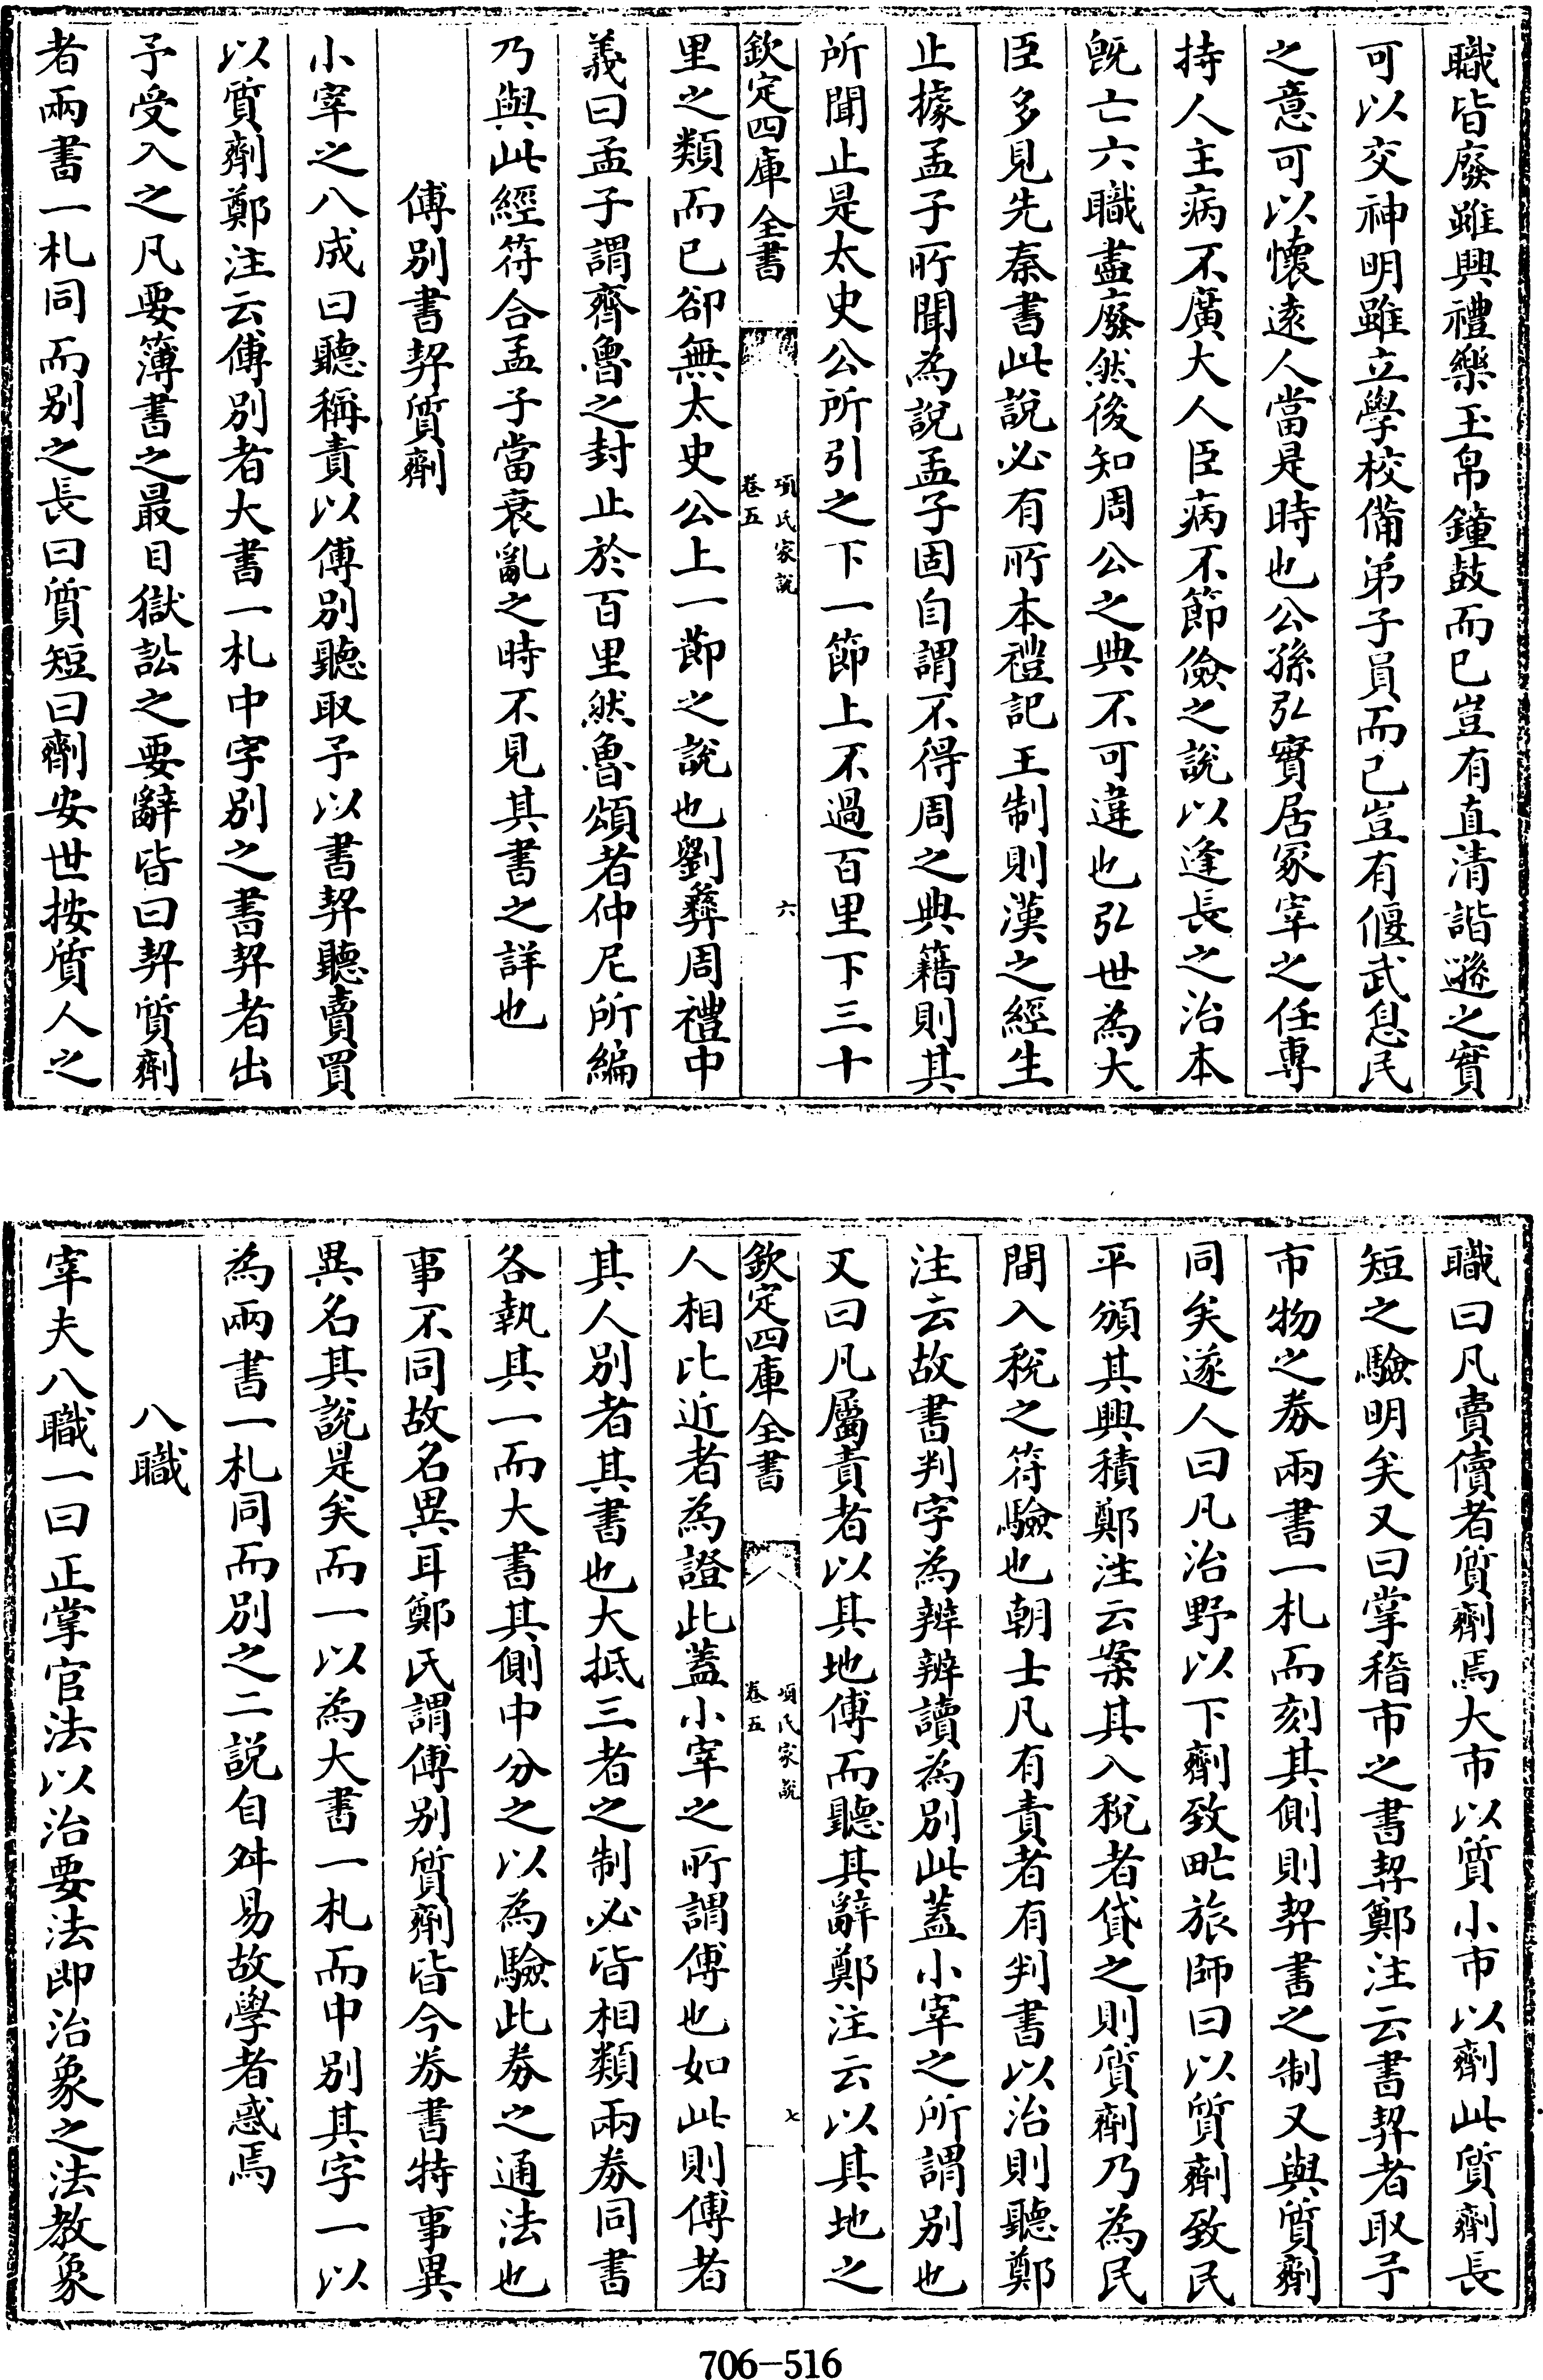 職皆廢雖興禮樂玉帛鐘鼓而已豈有直清諧遜之實
可以交神明雖立學校備弟子員而已豈有偃武息民
之意可以懷遠人當是時也公孫弘實居冢宰之任專
持人主病不廣大人臣病不節儉之說以逢長之治本
既亡六職盡廢然後知周公之典不可違也弘世為大
臣多見先秦書此說必有所本禮記王制則漢之經生
止據孟子所聞為說孟子固自謂不得周之典籍則其
所聞止是太史公所引之下一節上不過百里下三十
欽定四庫全書
項氏家說
卷五
六
里之類而已卻無太史公上一節之說也劉彝周禮中
義曰孟子謂齊魯之封止於百里然魯頌者仲尼所編
乃與此經符合孟子當衰亂之時不見其書之詳也
傅別書契質劑
小宰之八成曰聽稱責以傅別聽取予以書契聽賣買
以質劑鄭注云傅別者大書一札中字別之書契者出
予受入之凡要簿書之最目獄訟之要辭皆曰契質劑
者兩書一札同而別之長曰質短曰劑安世按質人之
職曰凡賣儥者質劑焉大市以質小市以劑此質劑長
短之驗明矣又曰掌稽市之書契鄭注云書契者取予
市物之券兩書一札而刻其側則契書之制又與質劑
同矣遂人曰凡治野以下劑致甿旅師曰以質劑致民
平頒其興積鄭注云案其入稅者貸之則質劑乃為民
間入稅之符驗也朝士凡有責者有判書以治則聽鄭
注云故書判字為辨辨讀為別此蓋小宰之所謂別也
又曰凡屬責者以其地傅而聽其辭鄭注云以其地之
欽定四庫全書
項氏家說
卷五
七
人相比近者為證此蓋小宰之所謂傅也如此則傅者
其人別者其書也大抵三者之制必皆相類兩券同書
各執其一而大書其側中分之以為驗此券之通法也
事不同故名異耳鄭氏謂傅別質劑皆今券書特事異
異名其說是矣而一以為大書一札而中別其字一以
為兩書一札同而別之二說自舛易故學者惑焉
八職
宰夫八職一曰正掌官法以治要法即治象之法教象
706-516